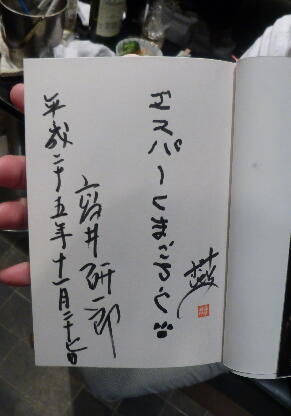 エスパーくまごろう
宮井研一郎
平成二十五年十一月二十七日